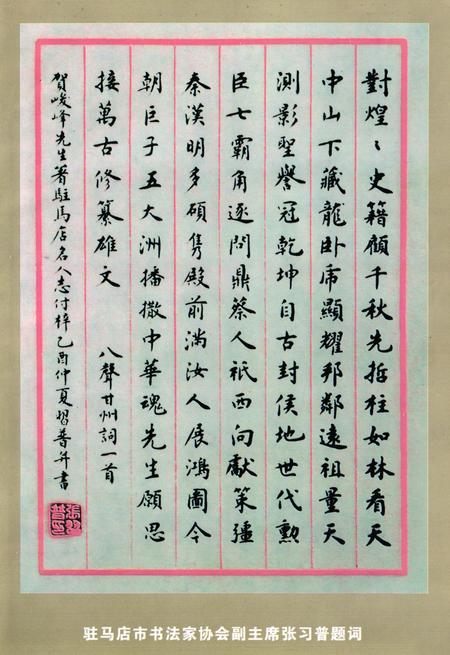 對煌々史籍顧千秋先哲柱如林看天
中山下藏龍卧虎顯耀邦鄰遠祖量天
測影聖譽冠乾坤自古封侯地世代勲
臣七霸角逐問鼎蔡人祇西向獻策疆
秦漢明多碩隽殿前滿汝人展鴻圖今
朝巨子五大洲播撒中華魂先生願思
接萬古修纂雄文 八聲甘州詞一首
賀峻峰先生著駐馬店名人志付梓乙酉仲夏習普并書
張習普印
驻马店市书法家协会副主席张习普题词